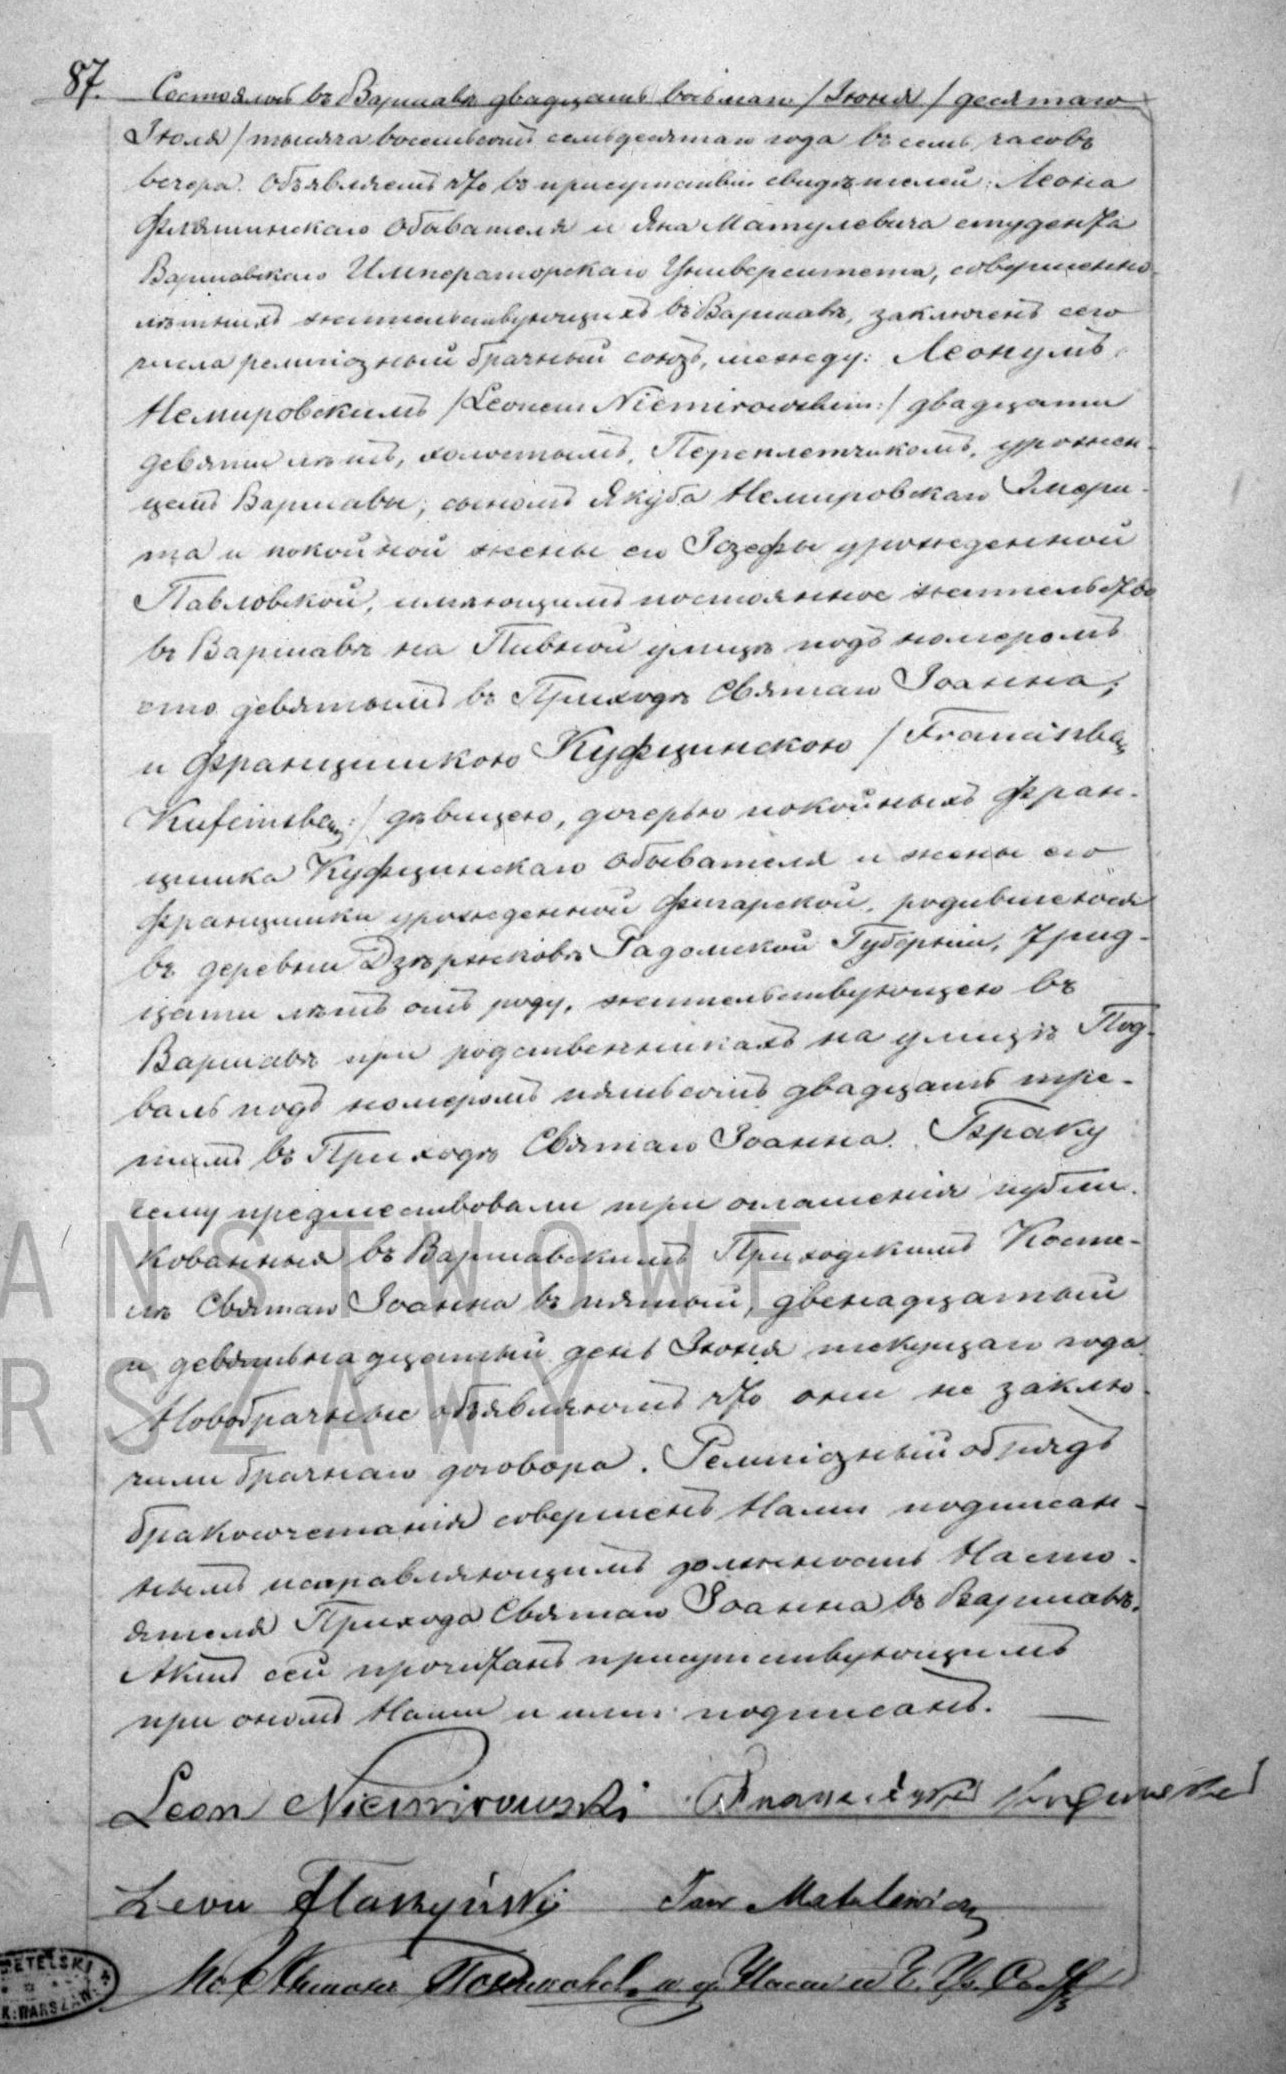 87. Состоялось въ Варшавѣ двадцать восьмаго /Іюня/ десятаго
Іюля/ тысяча восемьсотъ семьдесятаго года въ семь часовъ
вечера. Объявляемъ что въ присутствіи свидѣтелей: Леона
Фляшинскаго обывателя и Яна Матулевича студента
Варшавскаго Императорскаго Университета, совершенно-
лѣтнихъ жительствующихъ въ Варшавѣ, заключенъ сего
числа религіозный брачный союзъ, между: Леономъ
Немировскимъ /Leonem Niemirowskim:/ двадцати
девяти лѣтъ, холостымъ, Переплетчикомъ, урожен-
цемъ Варшавы, сыномъ Якуба Немировскаго Эмери-
та и покойной жены его Іозефы урожденной
Павловской, имѣющимъ постоянное жительство
въ Варшавѣ на Пивной улицѣ подъ номеромъ
сто девятымъ въ Приходѣ Святаго Іоанна;
и Францишкою Куфцинскою /Franciszką
Kufcińską:/ дѣвицею, дочерью покойныхъ Фран-
цишка Куфцинскаго обывателя и жены его
Францишки урожденной Фигарской, родившеюся
въ деревни Дзѣржковѣ Радомской Губерніи, трид-
цати лѣтъ отъ роду, жительствующею въ
Варшавѣ при родственникахъ на улицѣ Под-
валь подъ номеромъ пятьсотъ двадцать тре-
тимъ въ Приходѣ Святаго Іоанна. Браку
сему предшествовали три оглашенія публи-
кованныя въ Варшавскимъ Приходскимъ Косте-
лѣ Святаго Іоанна въ пятый, двенадцатый
и девятьнадцатый день Іюня текущаго года.
Новобрачные объявляютъ что они не заклю-
чили брачнаго договора. Религіозный обрядъ
бракосочетанія совершенъ Нами подписан-
нымъ исправляющимъ должность Насто-
ятеля Прихода Святаго Іоанна въ Варшавѣ.
Актъ сей прочитанъ присутствующимъ
при ономъ Нами и ими подписанъ.
Leon Niemirowski Franciszka
Leon Flaszyński Jan Matulewicz
и
ANSTWOWE
RSZAWY